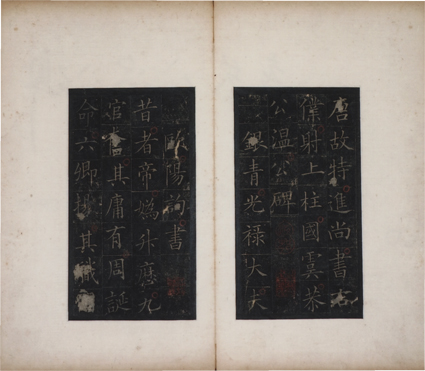 唐故特進尚書右
僕射上柱國虞恭
公温公碑
銀青光祿大夫
歐陽詢書
昔者帝媯升歷九
官奮其庸有周誕
命六卿其職